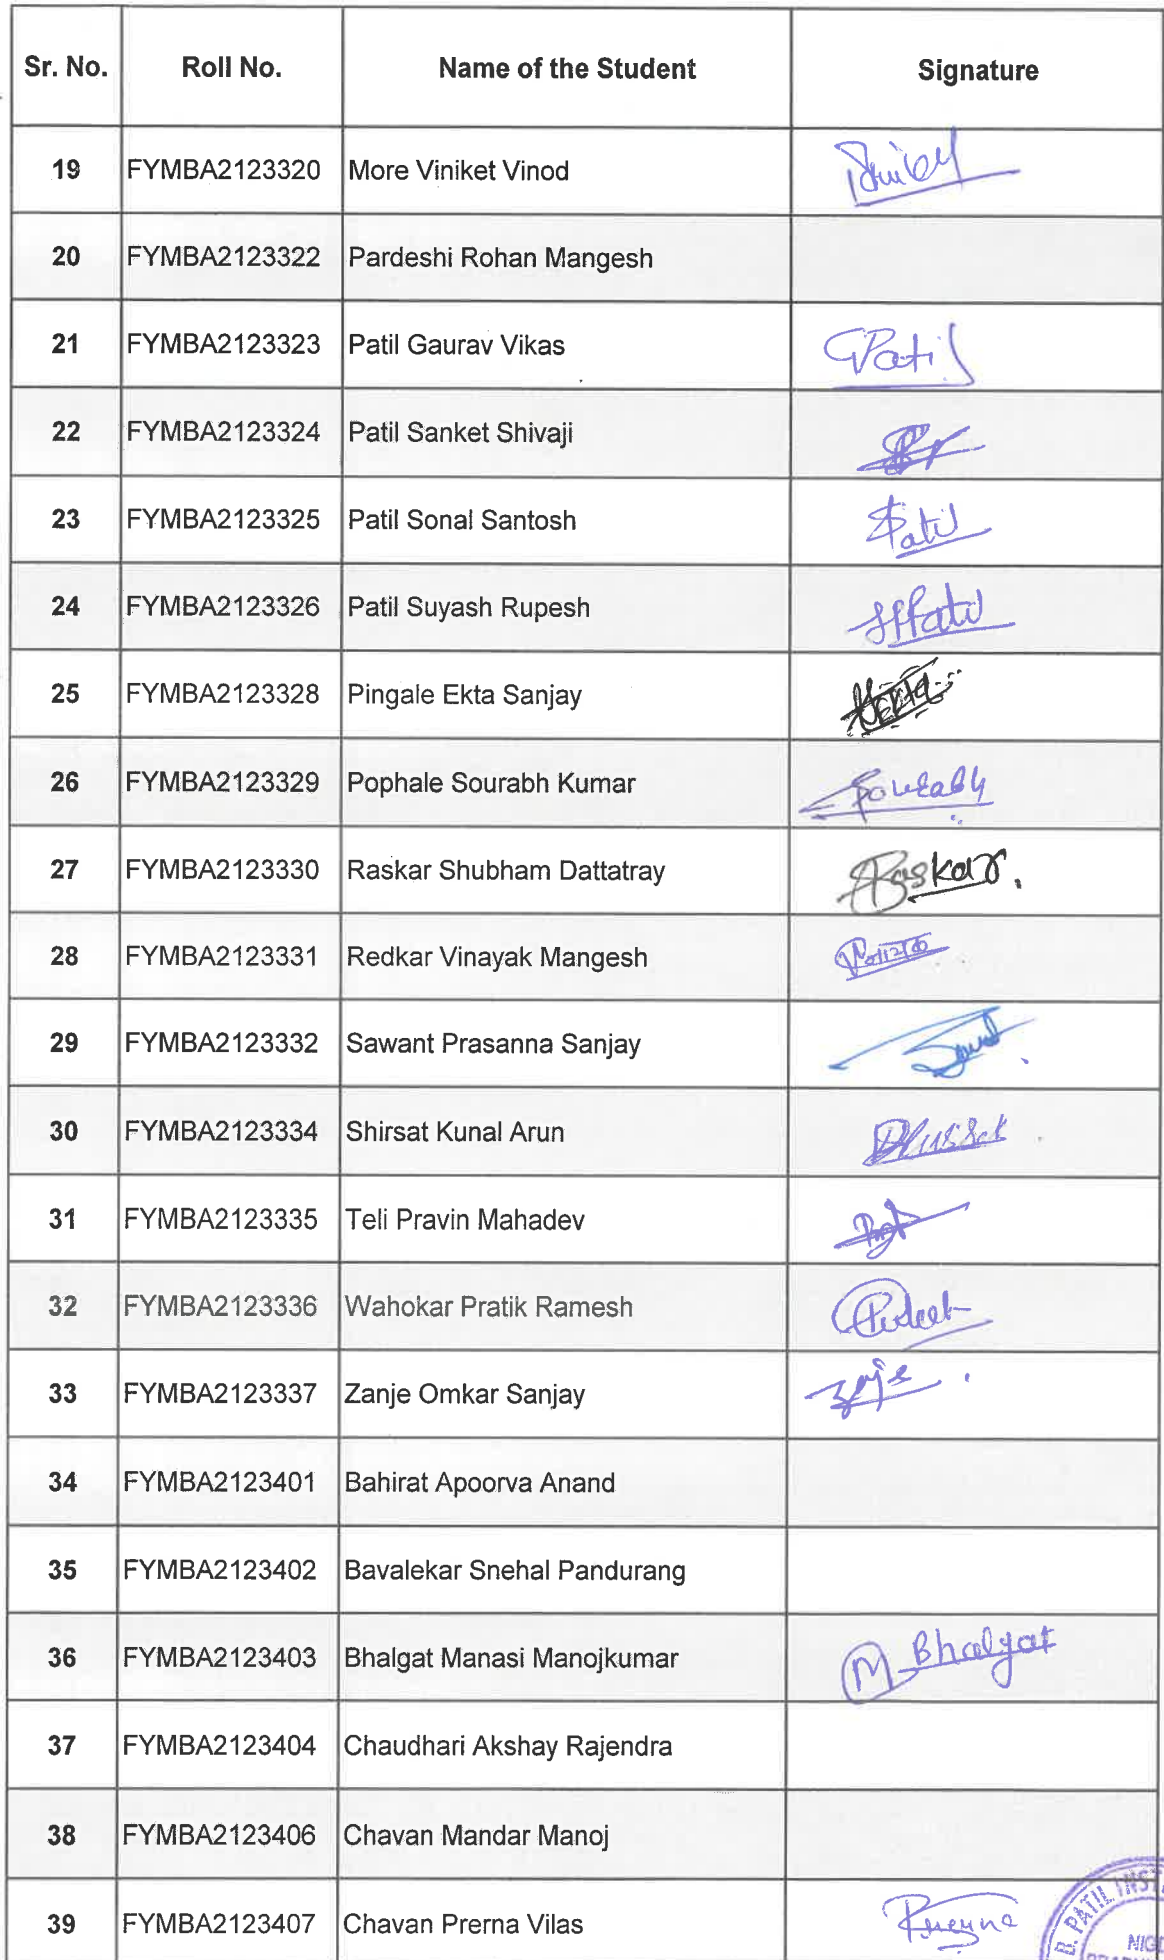 Sr. No. Roll No. Name of the Student Signature
19 FYMBA2123320 More Viniket Vinod
20 FYMBA2123322 Pardeshi Rohan Mangesh
21 FYMBA2123323 Patil Gaurav Vikas GPatil
22 FYMBA2123324 Patil Sanket Shivaji
23 FYMBA2123325 Patil Sonal Santosh SPatil
24 FYMBA2123326 Patil Suyash Rupesh
25 FYMBA2123328 Pingale Ekta Sanjay
26 FYMBA2123329 Pophale Sourabh Kumar Sourabh
27 FYMBA2123330 Raskar Shubham Dattatray Raskar.
28 FYMBA2123331 Redkar Vinayak Mangesh
29 FYMBA2123332 Sawant Prasanna Sanjay
30 FYMBA2123334 Shirsat Kunal Arun
31 FYMBA2123335 Teli Pravin Mahadev
32 FYMBA2123336 Wahokar Pratik Ramesh
33 FYMBA2123337 Zanje Omkar Sanjay
34 FYMBA2123401 Bahirat Apoorva Anand
35 FYMBA2123402 Bavalekar Snehal Pandurang
36 FYMBA2123403 Bhalgat Manasi Manojkumar M Bhalgat
37 FYMBA2123404 Chaudhari Akshay Rajendra
38 FYMBA2123406 Chavan Mandar Manoj
39 FYMBA2123407 Chavan Prerna Vilas
PATIL INST